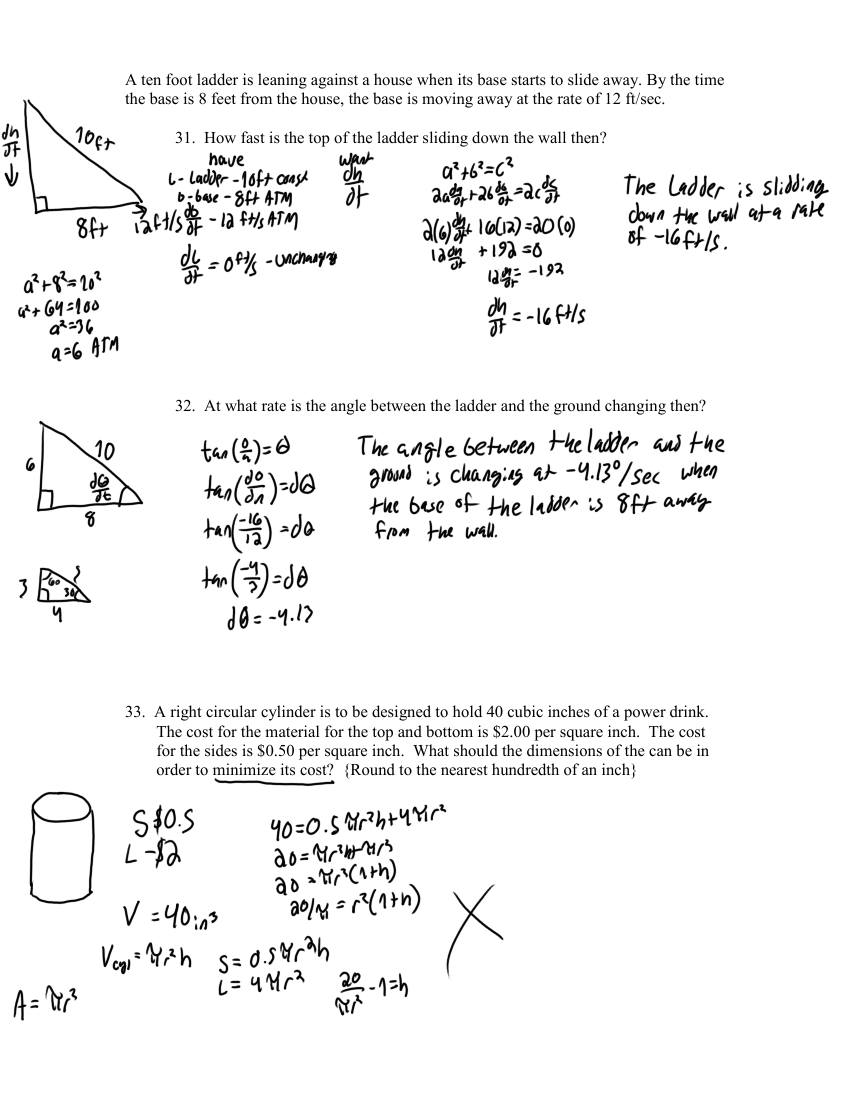 A ten foot ladder is leaning against a house when its base starts to slide away. By the time
the base is 8 feet from the house, the base is moving away at the rate of 12 ft/sec.
31. How fast is the top of the ladder sliding down the wall then?
dh/dt ↓
10ft
8ft
12ft/s
have
L - Ladder - 10ft const
b - base - 8ft ATM
db/dt - 12 ft/s ATM
dL/dt = 0 ft/s - unchanging
want
dh/dt
a²+8²=10²
a²+64=100
a²=36
a=6 ATM
a²+b²=c²
2a da/dt + 2b db/dt = 2c dc/dt
2(6) dh/dt + 16(12) = 20(0)
12 dh/dt + 192 = 0
12 dh/dt = -192
dh/dt = -16 ft/s
The Ladder is slidding
down the wall at a rate
of -16 ft/s.
32. At what rate is the angle between the ladder and the ground changing then?
6
10
dθ/dt
8
3
60
30
4
tan(o/a)=θ
tan(do/da)=dθ
tan(-16/12)=dθ
tan(-4/3)=dθ
dθ = -4.13
The angle between the ladder and the
ground is changing at -4.13°/sec when
the base of the ladder is 8ft away
from the wall.
33. A right circular cylinder is to be designed to hold 40 cubic inches of a power drink.
The cost for the material for the top and bottom is $2.00 per square inch. The cost
for the sides is $0.50 per square inch. What should the dimensions of the can be in
order to minimize its cost? {Round to the nearest hundredth of an inch}
S $0.5
L - $2
V = 40in³
Vcyl = πr²h
A = πr²
S = 0.5πr²h
L = 4πr²
40=0.5πr²h+4πr²
20=πr²h+πr²
20=πr²(1+h)
20/π = r²(1+h)
20/πr² - 1 = h